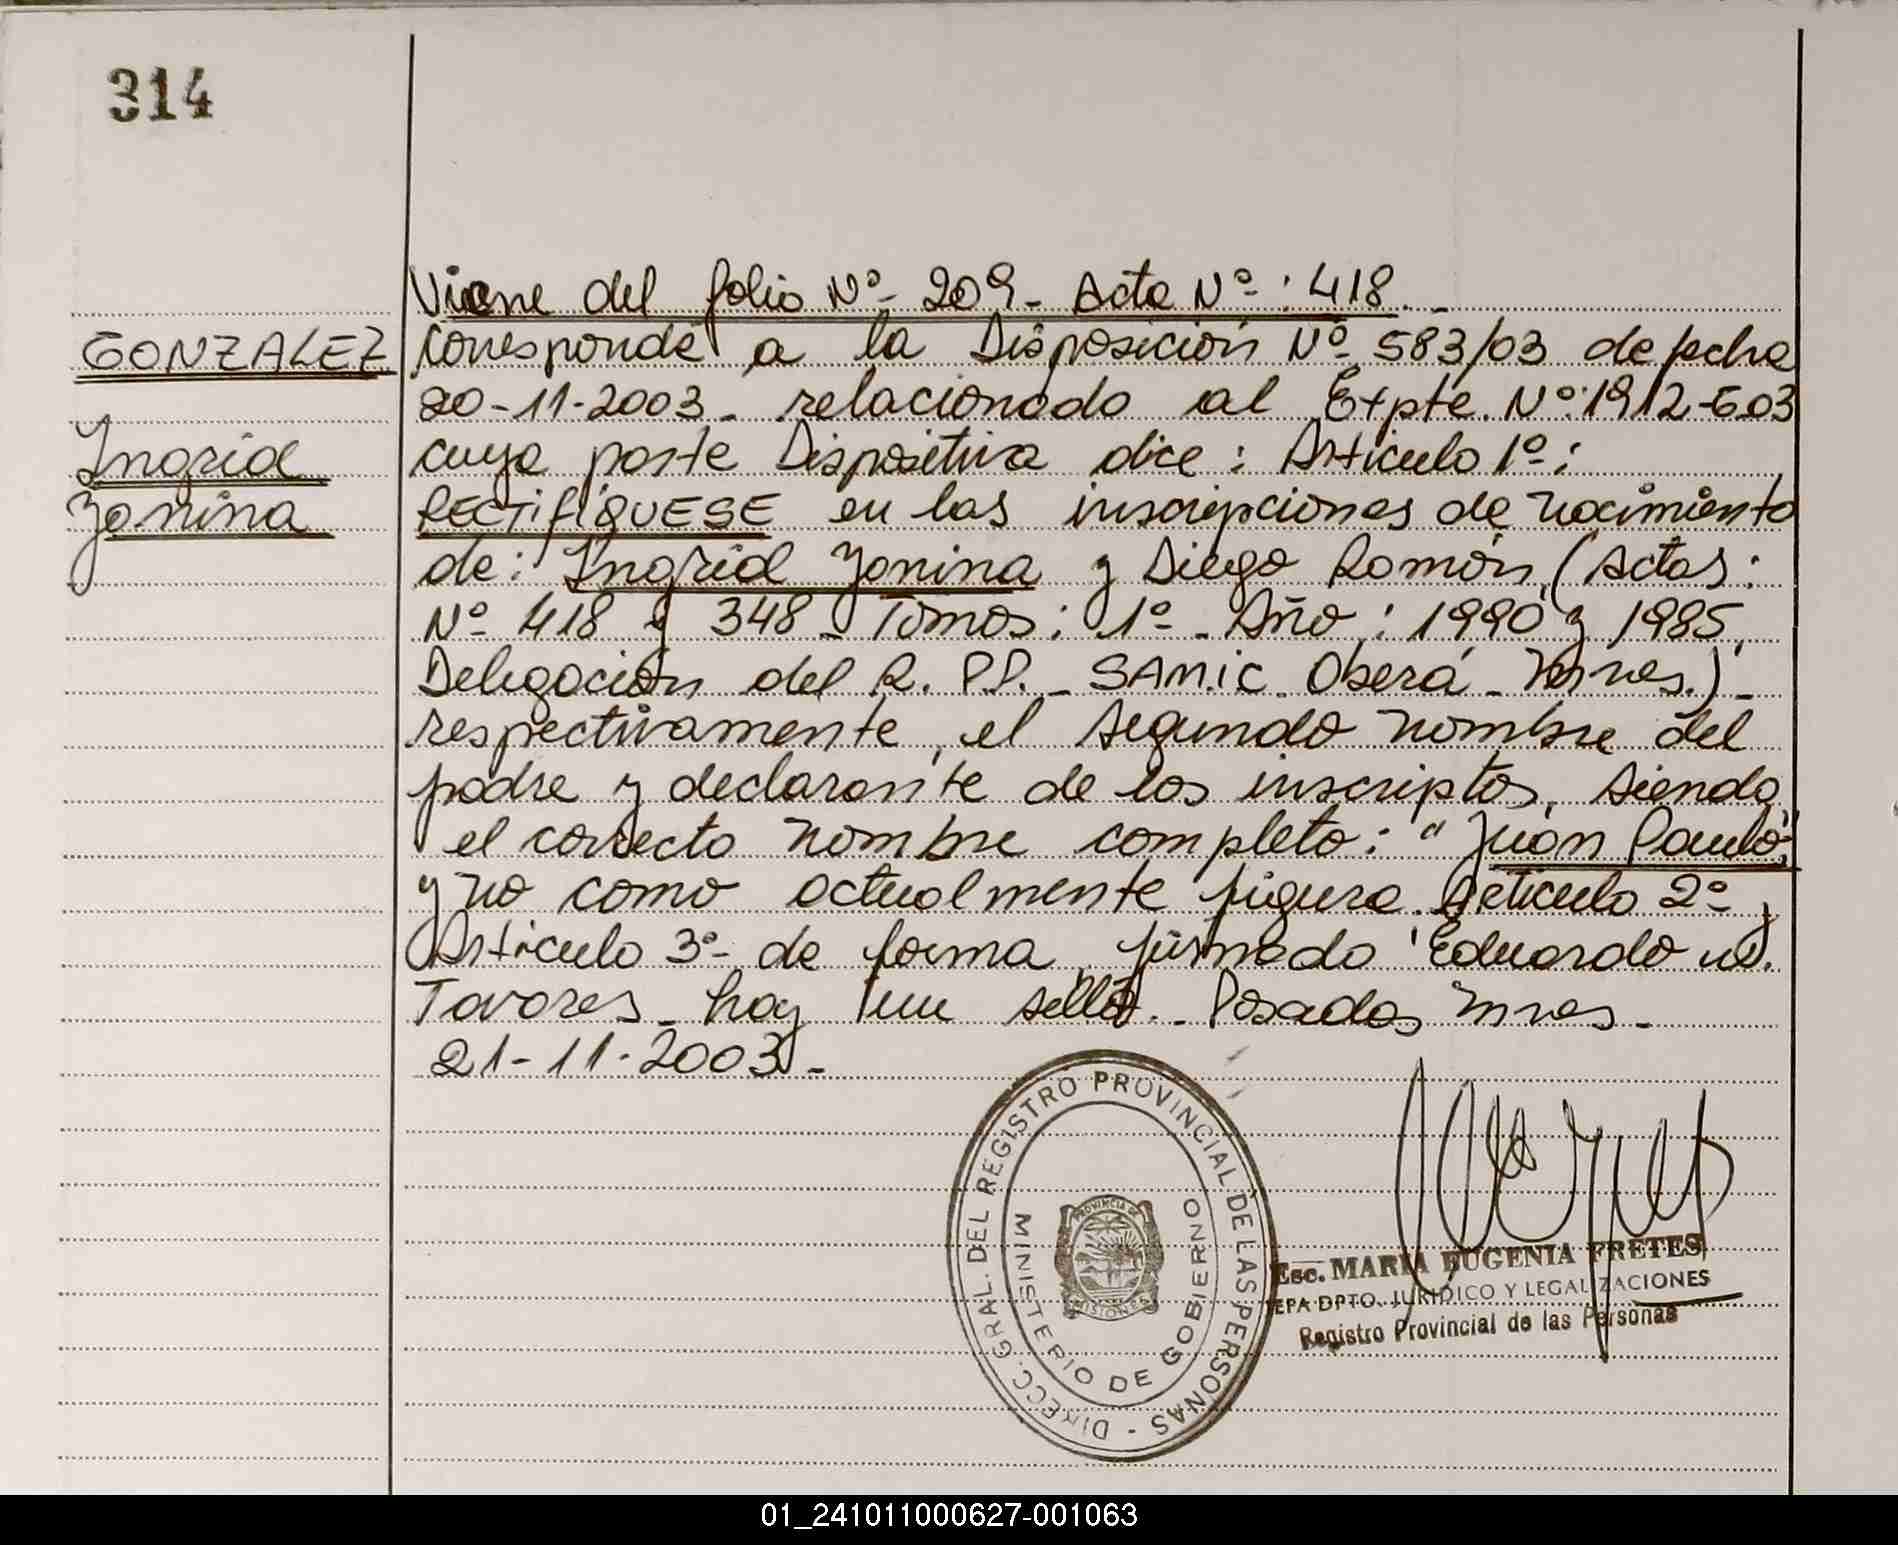 314
Viene del folio Nº 209- Acta Nº: 418.-
GONZALEZ
Corresponde a la Disposición Nº 583/03 de fecha
20-11-2003- relacionado al Expte. Nº: 1912-603
Ingrid
cuya parte Dispositiva dice: Artículo 1º:
Yonina
RECTIFÍQUESE en las inscripciones de nacimiento
de: Ingrid Yonina y Diego Román (Actas:
Nº 418 y 348 - Tomos: 1º - Año: 1990 y 1985,
Delegación del R. PP. - SAMIC Oberá - Mnes.) -
respectivamente, el segundo nombre del
padre y declarante de los inscriptos, siendo
el correcto nombre completo: "Juan Paulo"
y no como actualmente figura. Artículo 2º y
Artículo 3º de forma, firmado Eduardo
Tavares - hay un sello. - Posadas Mnes -
21-11-2003.-
DIRECC. GRAL. DEL REGISTRO PROVINCIAL DE LAS PERSONAS -
MINISTERIO DE GOBIERNO
PROVINCIA DE
MISIONES
Esc. MARIA EUGENIA FRETES
JEFA DPTO. JURIDICO Y LEGALIZACIONES
Registro Provincial de las Personas
01_241011000627-001063